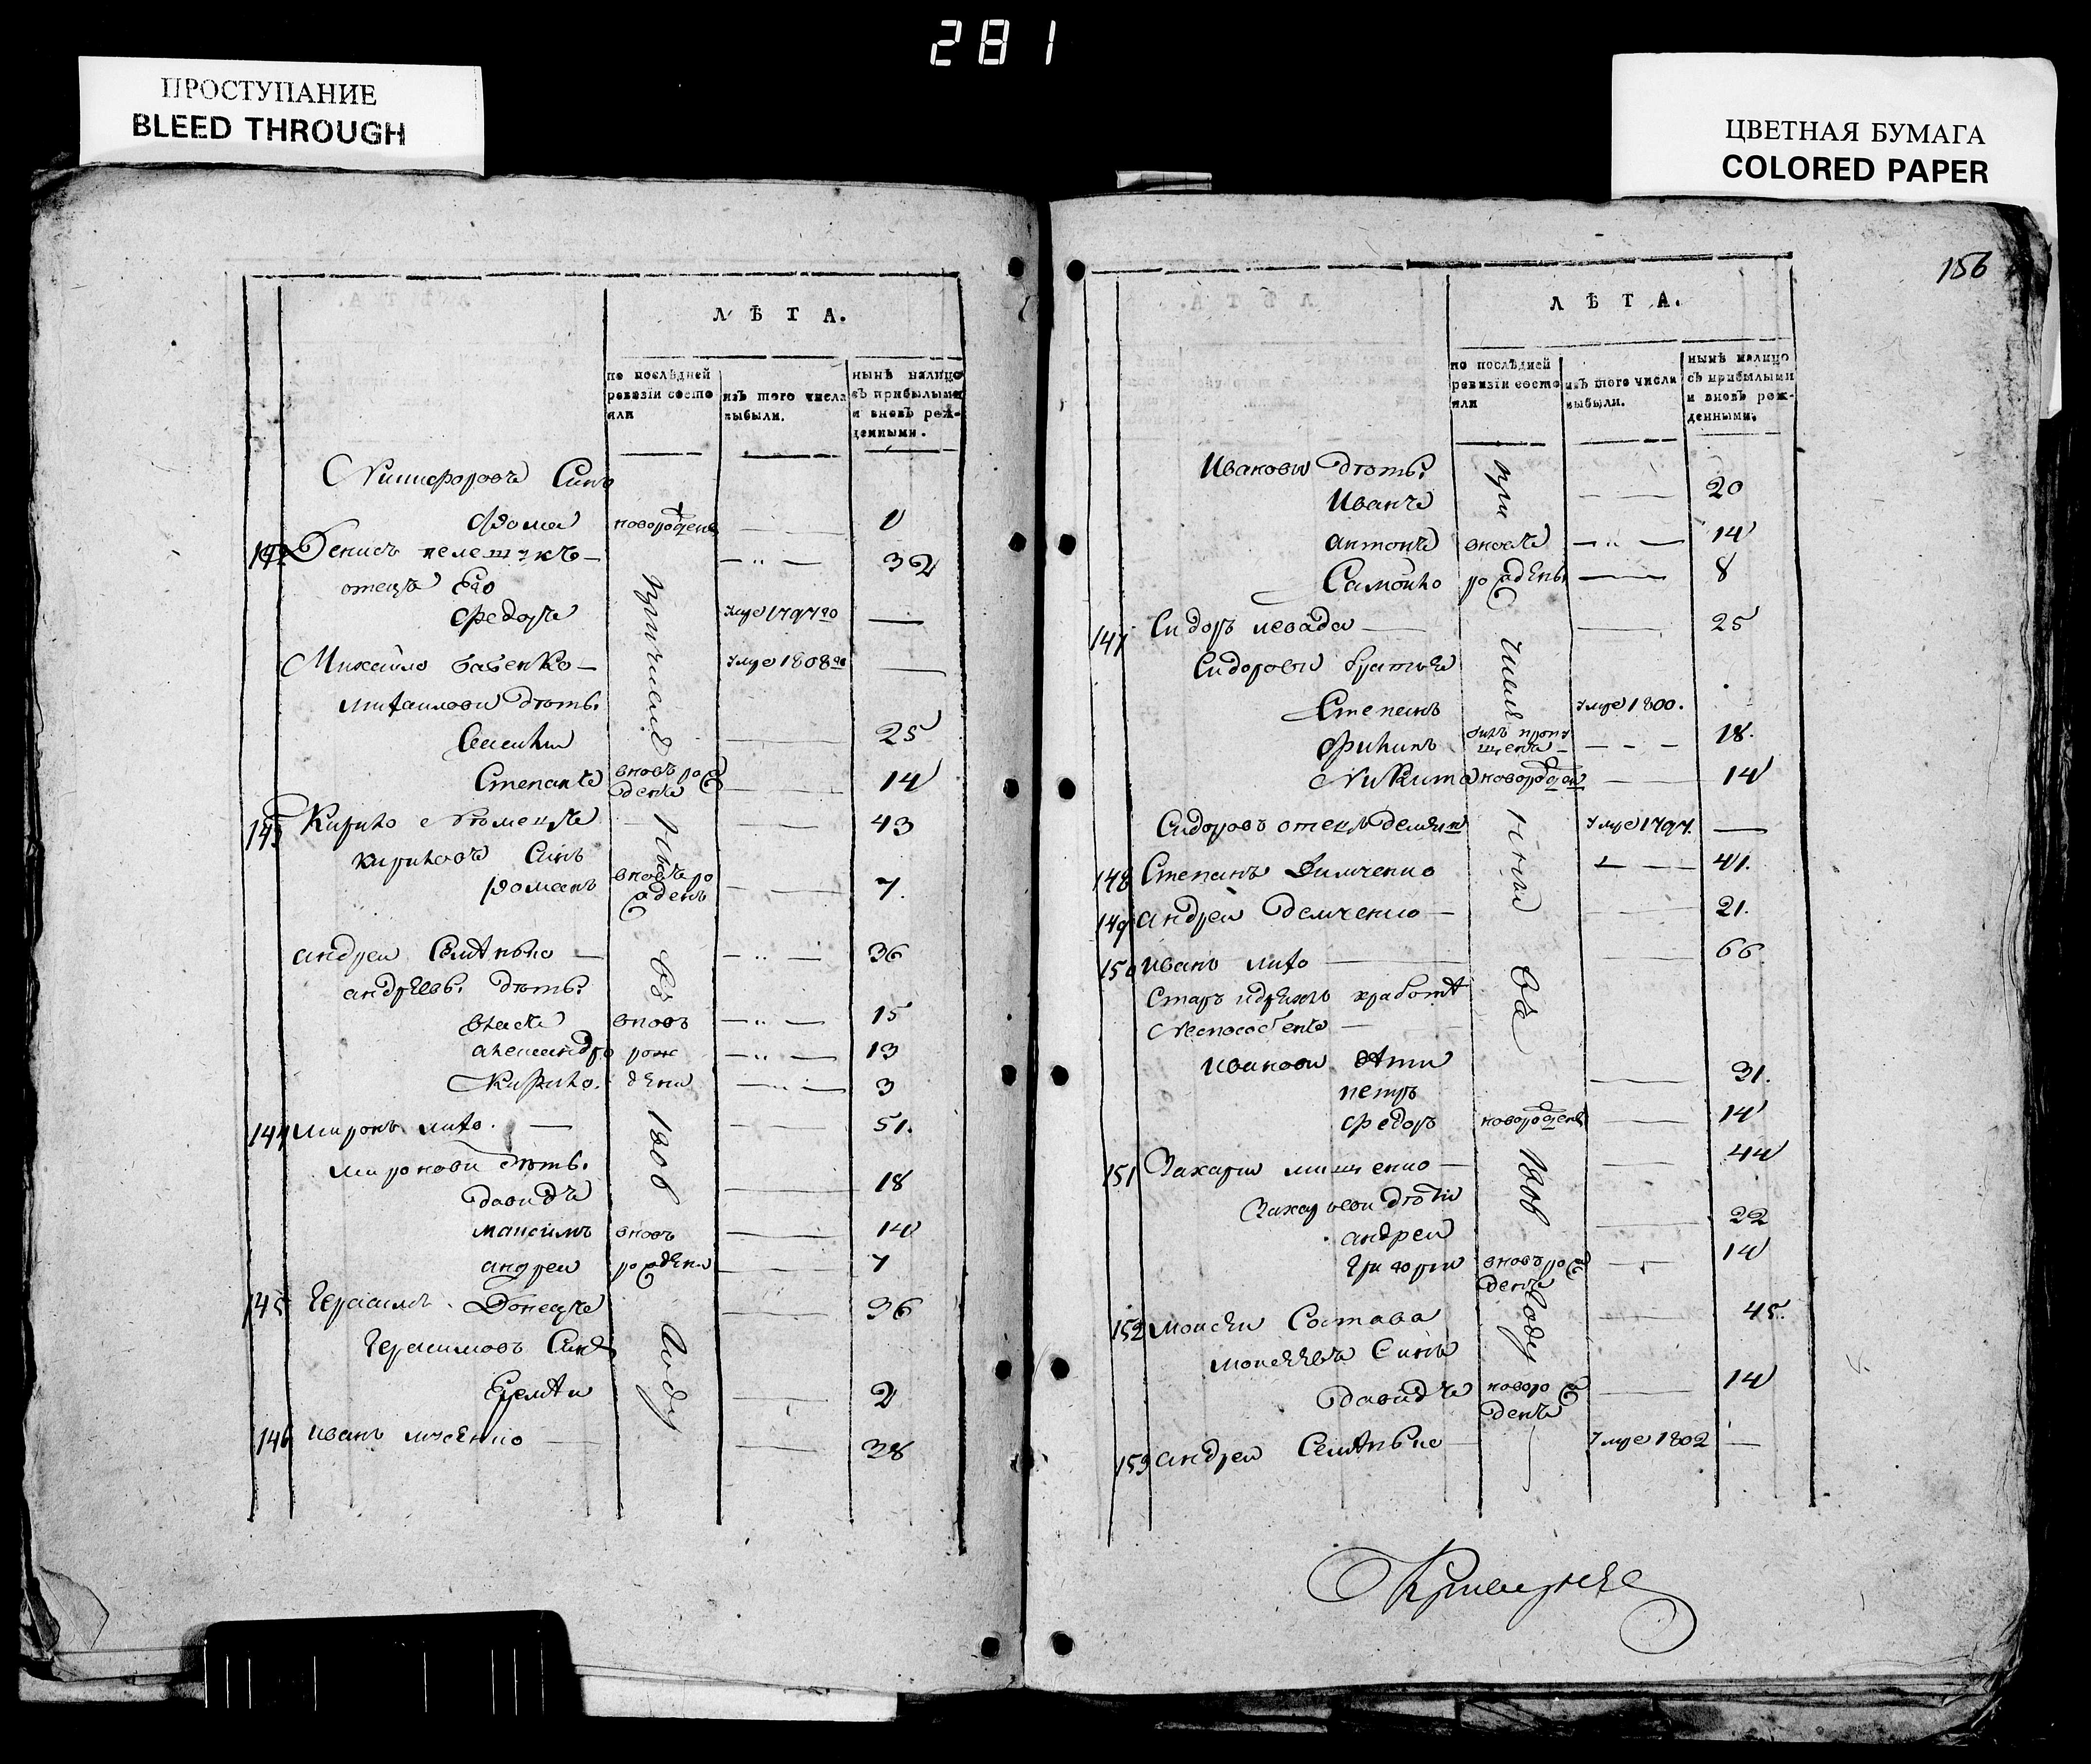 281
ПРОСТУПАНИЕ
BLEED THROUGH
ЦВЕТНАЯ БУМАГА
COLORED PAPER
ЛѢТА.
по послѣдней ревизіи состояли
изъ того числа выбыли.
нынѣ налицо съ прибылыми и вновь рожденными.
Никифоровъ Синъ
Фома новорожденъ — 1
142 Денисъ пелешикъ — — 32
отецъ Его
Федоръ Умре 1797го —
Михайло бабенко — Умре 1808го —
михаилови дѣты:
25
Степанъ вновь рожденъ — 14
143 Кирило Немецъ — 43
кириловъ Синъ
романъ вновъ рожденъ — 7.
андреи Семѣнько — — 36
андрѣевы: дѣты:
власъ вновь — 15
александро рож — 13
Кирило. дени — 3
144 миронъ лихо. — — 51.
миронови дѣты.
давидъ — 18
максимъ вновъ — 14
андреи рождени — 7
145 Герасимъ Донецъ — 36
Герасимовъ Синъ
Еремѣи — 2
146 иванъ — 38
причисленъ
1808
году
156
ЛѢТА.
по послѣдней ревизіи состояли
изъ того числа выбыли.
нынѣ налицо съ прибылыми и вновь рожденными.
Иванови дѣты:
Иванъ — 20
антонъ вновъ — 14
Самойло рождены — 8
147 Сидоръ левада — — 25
Сидорови братья
Степанъ Умре 1800.
Филипъ билъ пропущенъ — 18.
Никита новорожден — 14
Сидоровъ отецъ демян Умре 1797. —
148 Степанъ — 41.
149 андреи демченко — — 21.
150 иванъ лихо — — 66
Старъ идряхлъ кработѣ
Неспособенъ —
иванови дѣти
петръ — 31.
федоръ новорожденъ — 14
151 Захарии мищенко — — 44
Захарьеви дѣти
андреи — 22
григории вновь рожденъ — 14
152 моисеи Состава — 45.
моисеевъ Синъ
давидъ новорожденъ — 14
153 андреи Семѣнько — Умре 1802 —
при
числ
ени
въ
1808
году